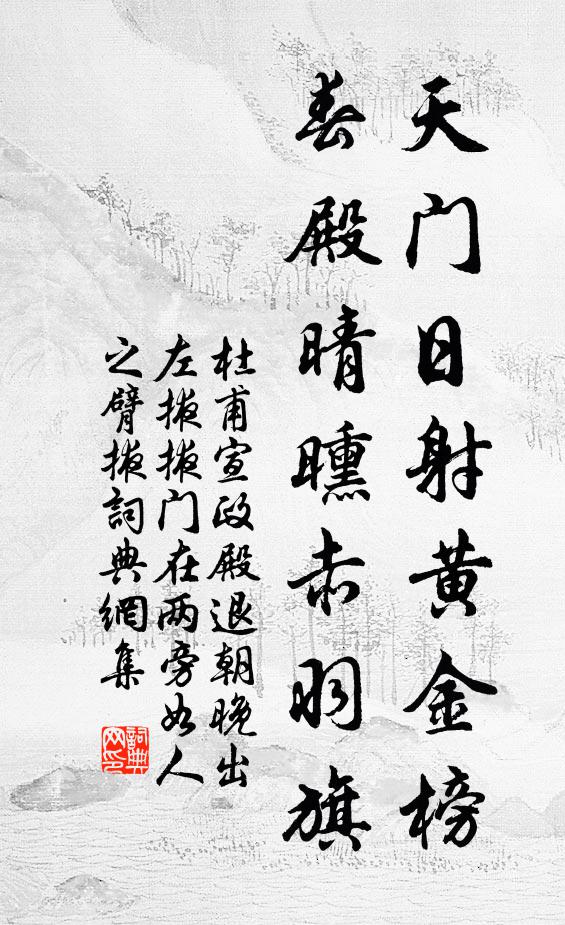 天门日射黄金榜
春殿晴曛赤羽旗
杜甫宣政殿退朝晚出
左掖掖门在两旁如人
之臂掖詞典網集
詞典
网印